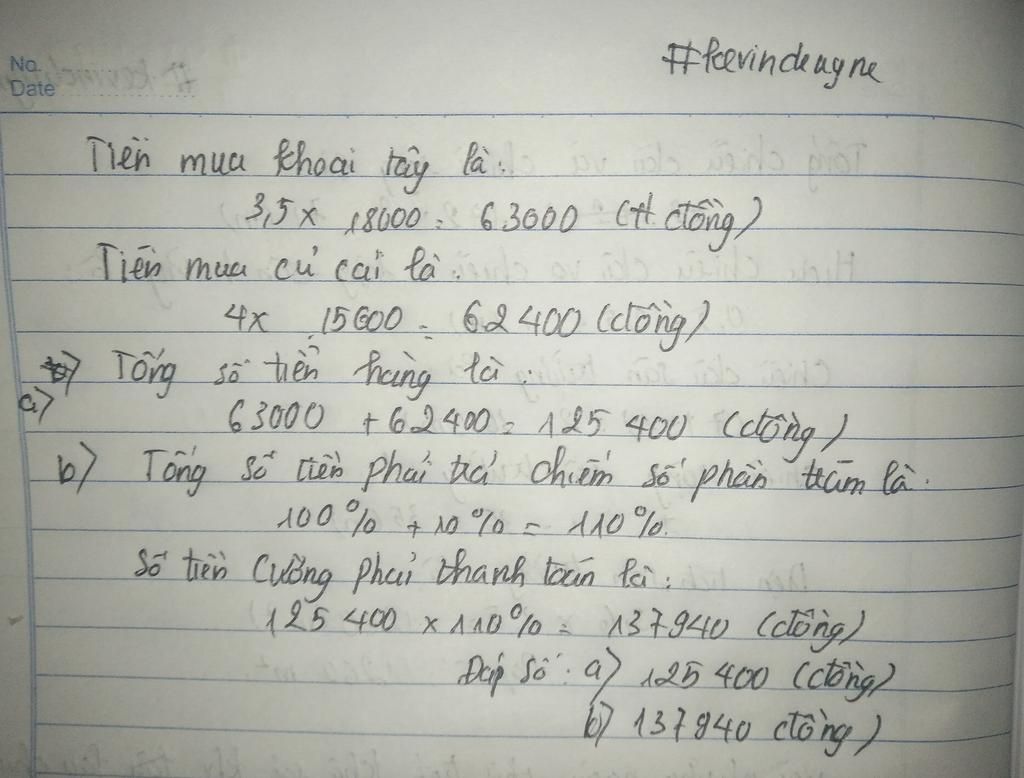 No.
Date
#kevindeuyne
Tiền mua khoai tây là:
3,5 x 18000 = 63000 (đồng)
Tiền mua củ cải là:
4x 15600 = 62400 (đồng)
b) Tổng số tiền hàng là:
a)
63000 + 62400 = 125 400 (đồng)
b) Tổng số tiền phải trả chiếm số phần trăm là:
100% + 10% = 110%.
Số tiền Cường phải thanh toán là:
125 400 x 110% = 137940 (đồng)
Đáp số: a) 125400 (đồng)
b) 137940 đồng)